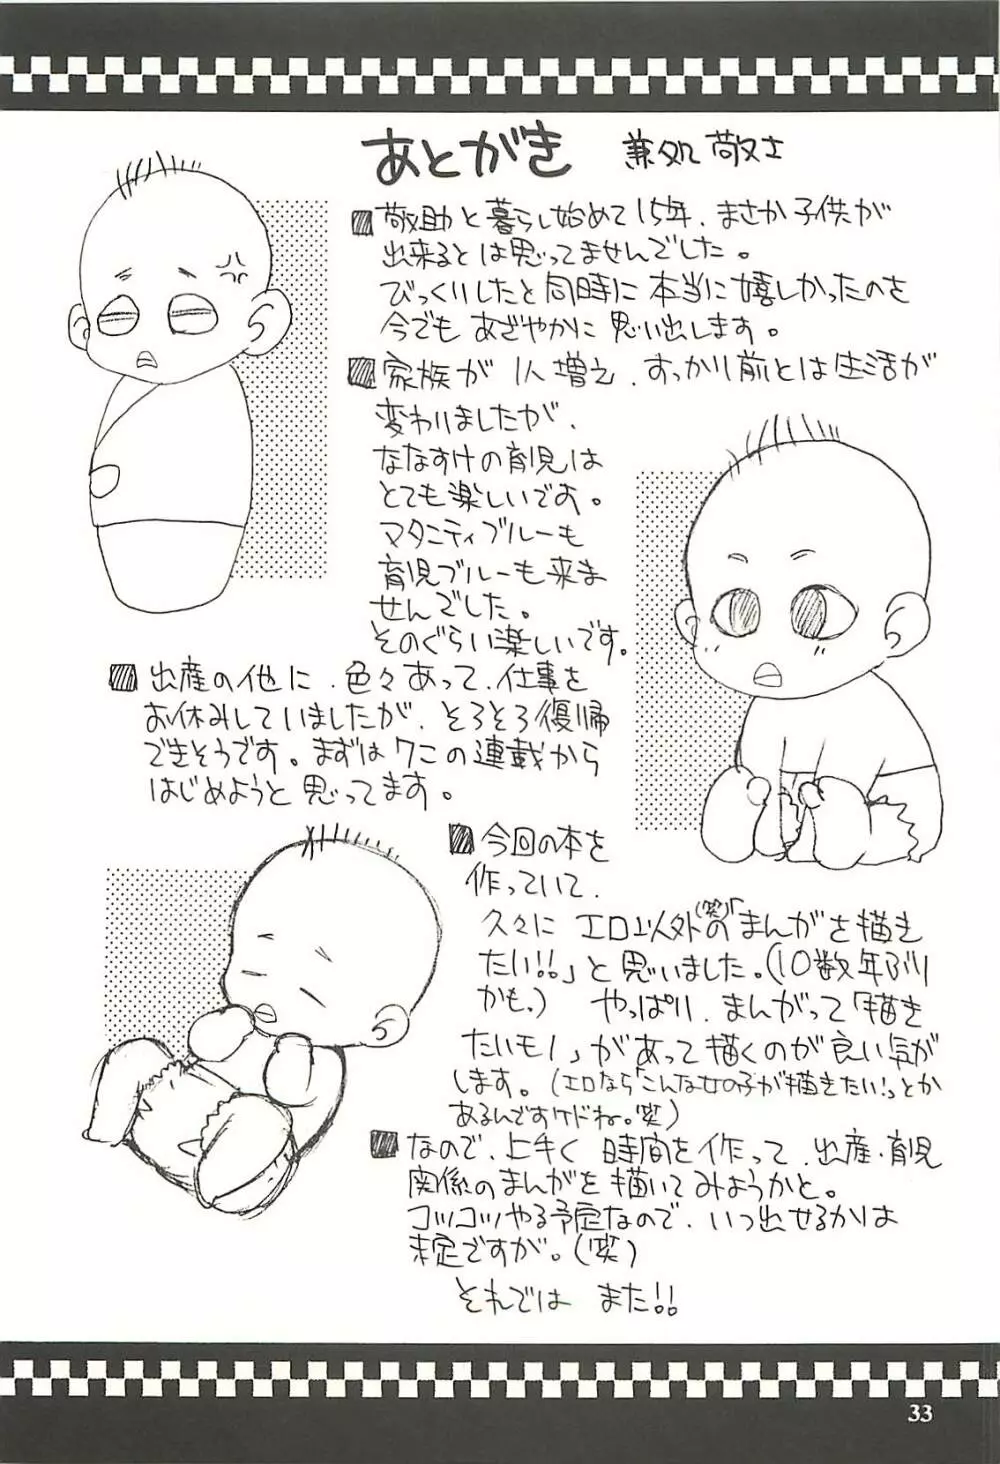 あとがき 兼処 敬士
■敬助と暮らし始めて15年、まさか子供が
出来るとは思ってませんでした。
びっくりしたと同時に本当に嬉しかったのを
今でもあざやかに思い出します。
■家族が1人増え、すっかり前とは生活が
変わりましたが、
ななすけの育児は
とても楽しいです。
マタニティブルーも
育児ブルーも来ま
せんでした。
そのぐらい楽しいです。
■出産の他に、色々あって、仕事を
お休みしていましたが、そろそろ復帰
できそうです。まずはクニの連載から
はじめようと思ってます。
■今回の本を
作っていて、
久々に エロ以外の(笑)「まんがを描き
たい!!」と思いました。(10数年ぶり
かも。) やっぱり、まんがって「描き
たいモノ」があって描くのが良い気が
します。(エロなら「こんな女の子が描きたい!」とか
あるんですけドね。笑)
■なので、上手く時間を作って、出産・育児
関係のまんがを描いてみようかと。
コツコツやる予定なので、いつ出せるかは
未定ですが。(笑)
それでは また!!
33